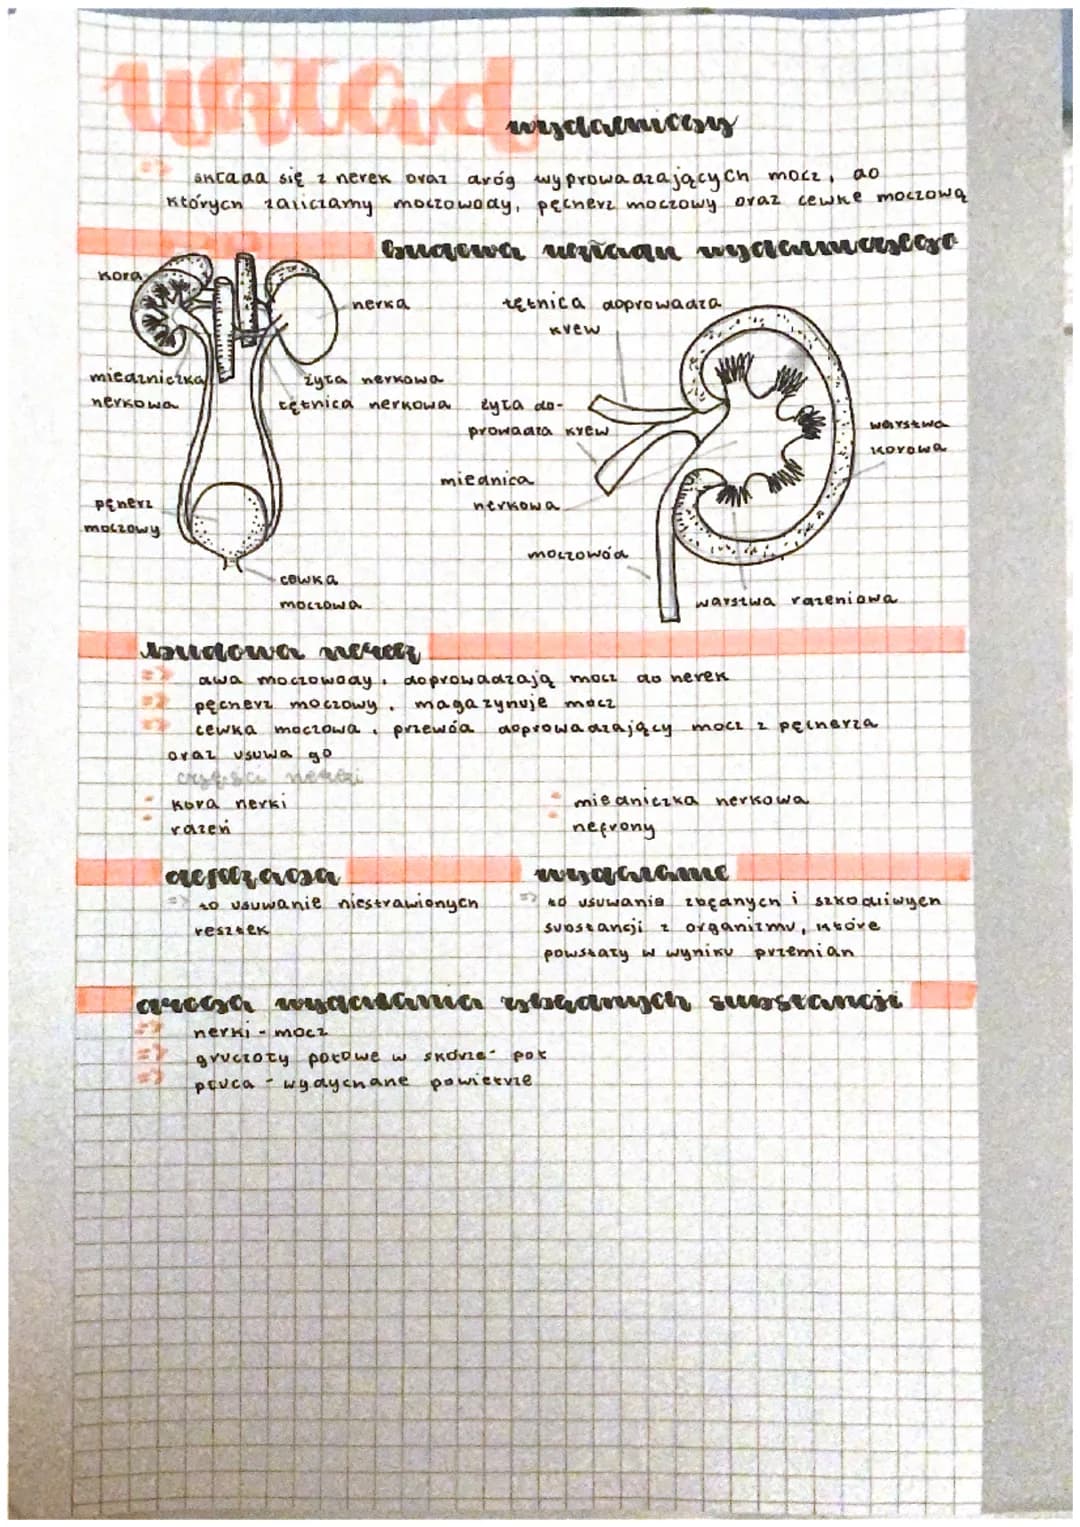 układ wydalniczy
=> składa się z nerek oraz dróg wyprowadzających mocz, do
których zaliczamy moczowody, pęcherz moczowy oraz cewkę moczową
budowa układu wydalniczego
kora
nerka
miedniczka
nerkowa
żyła nerkowa
tętnica nerkowa
pęherz
moczowy
cewka
moczowa
tętnica doprowadza
krew
żyła do-
prowadza krew
miednica
nerkowa
moczowód
warstwa
korowa
warstwa rdzeniowa
budowa nerek
=> dwa moczowody, doprowadzają mocz do nerek
=> pęcherz moczowy, magazynuje mocz
=> cewka moczowa, przewód doprowadzający mocz z pęcherza
oraz usuwa go
części nerki
kora nerki
rdzeń
miedniczka nerkowa
nefrony
defekacja
=> to usuwanie niestrawionych
resztek
wydalanie
=> to usuwanie zbędnych i szkodliwych
substancji z organizmu, które
powstały w wyniku przemian
droga wydalania zbędnych substancji
=> nerki - mocz
=> gruczoły potowe w skórze - pot
=> płuca - wydychane powietrze